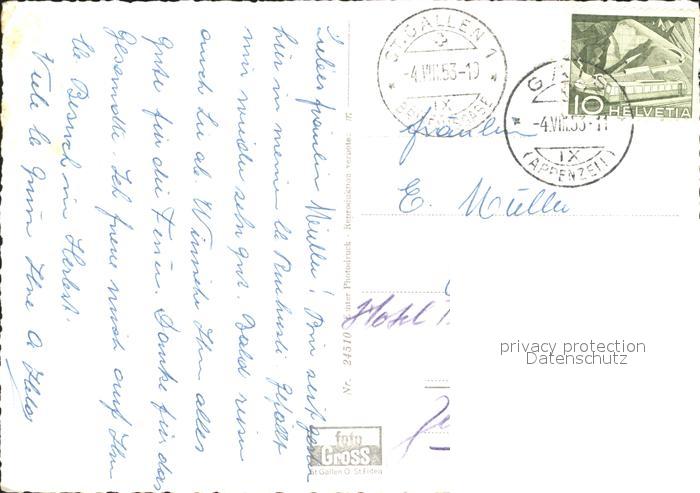 Liebes Fräulein Müller! Bin seit gestern
hier in meinem lb. Gefällt
mir wieder sehr gut. Bald reisen
auch Sie ab. Wünsche Ihnen alles
Gute für die Ferien. Danke für das
Gesandte. Ich freue mich auf Ihren
lb. Besuch im Herbst.
Viele lb. Grüsse Ihre A.
Fräulein
E. Müller
Hotel
ST.GALLEN 1
3
-4.VIII.53-10
IX
GAIS
-4.VIII.53-11
IX
(APPENZELL)
10 HELVETIA
privacy protection
Datenschutz
Nr. 24510
Photodruck - Reproduktion verboten.
foto
Gross
St Gallen O. St Fiden